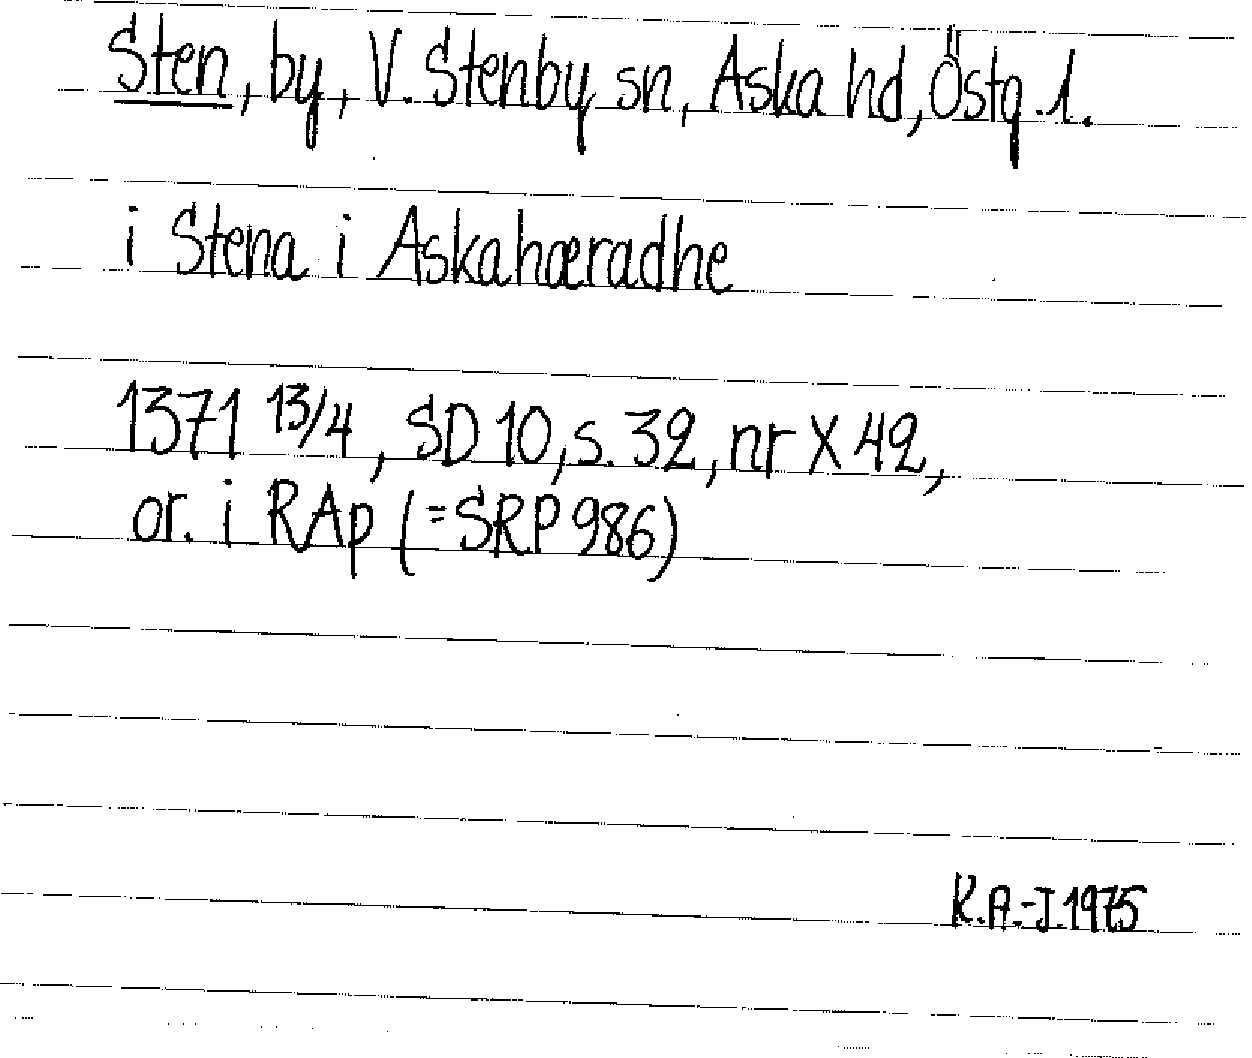 Sten, by, V. Stenby sn, Aska hd, Östg. l.
i Stena i Askahæradhe
1371 13/4, SD 10, s. 32, nr X 42,
or. i RAp (=SRP 986)
K.A.-J. 1975